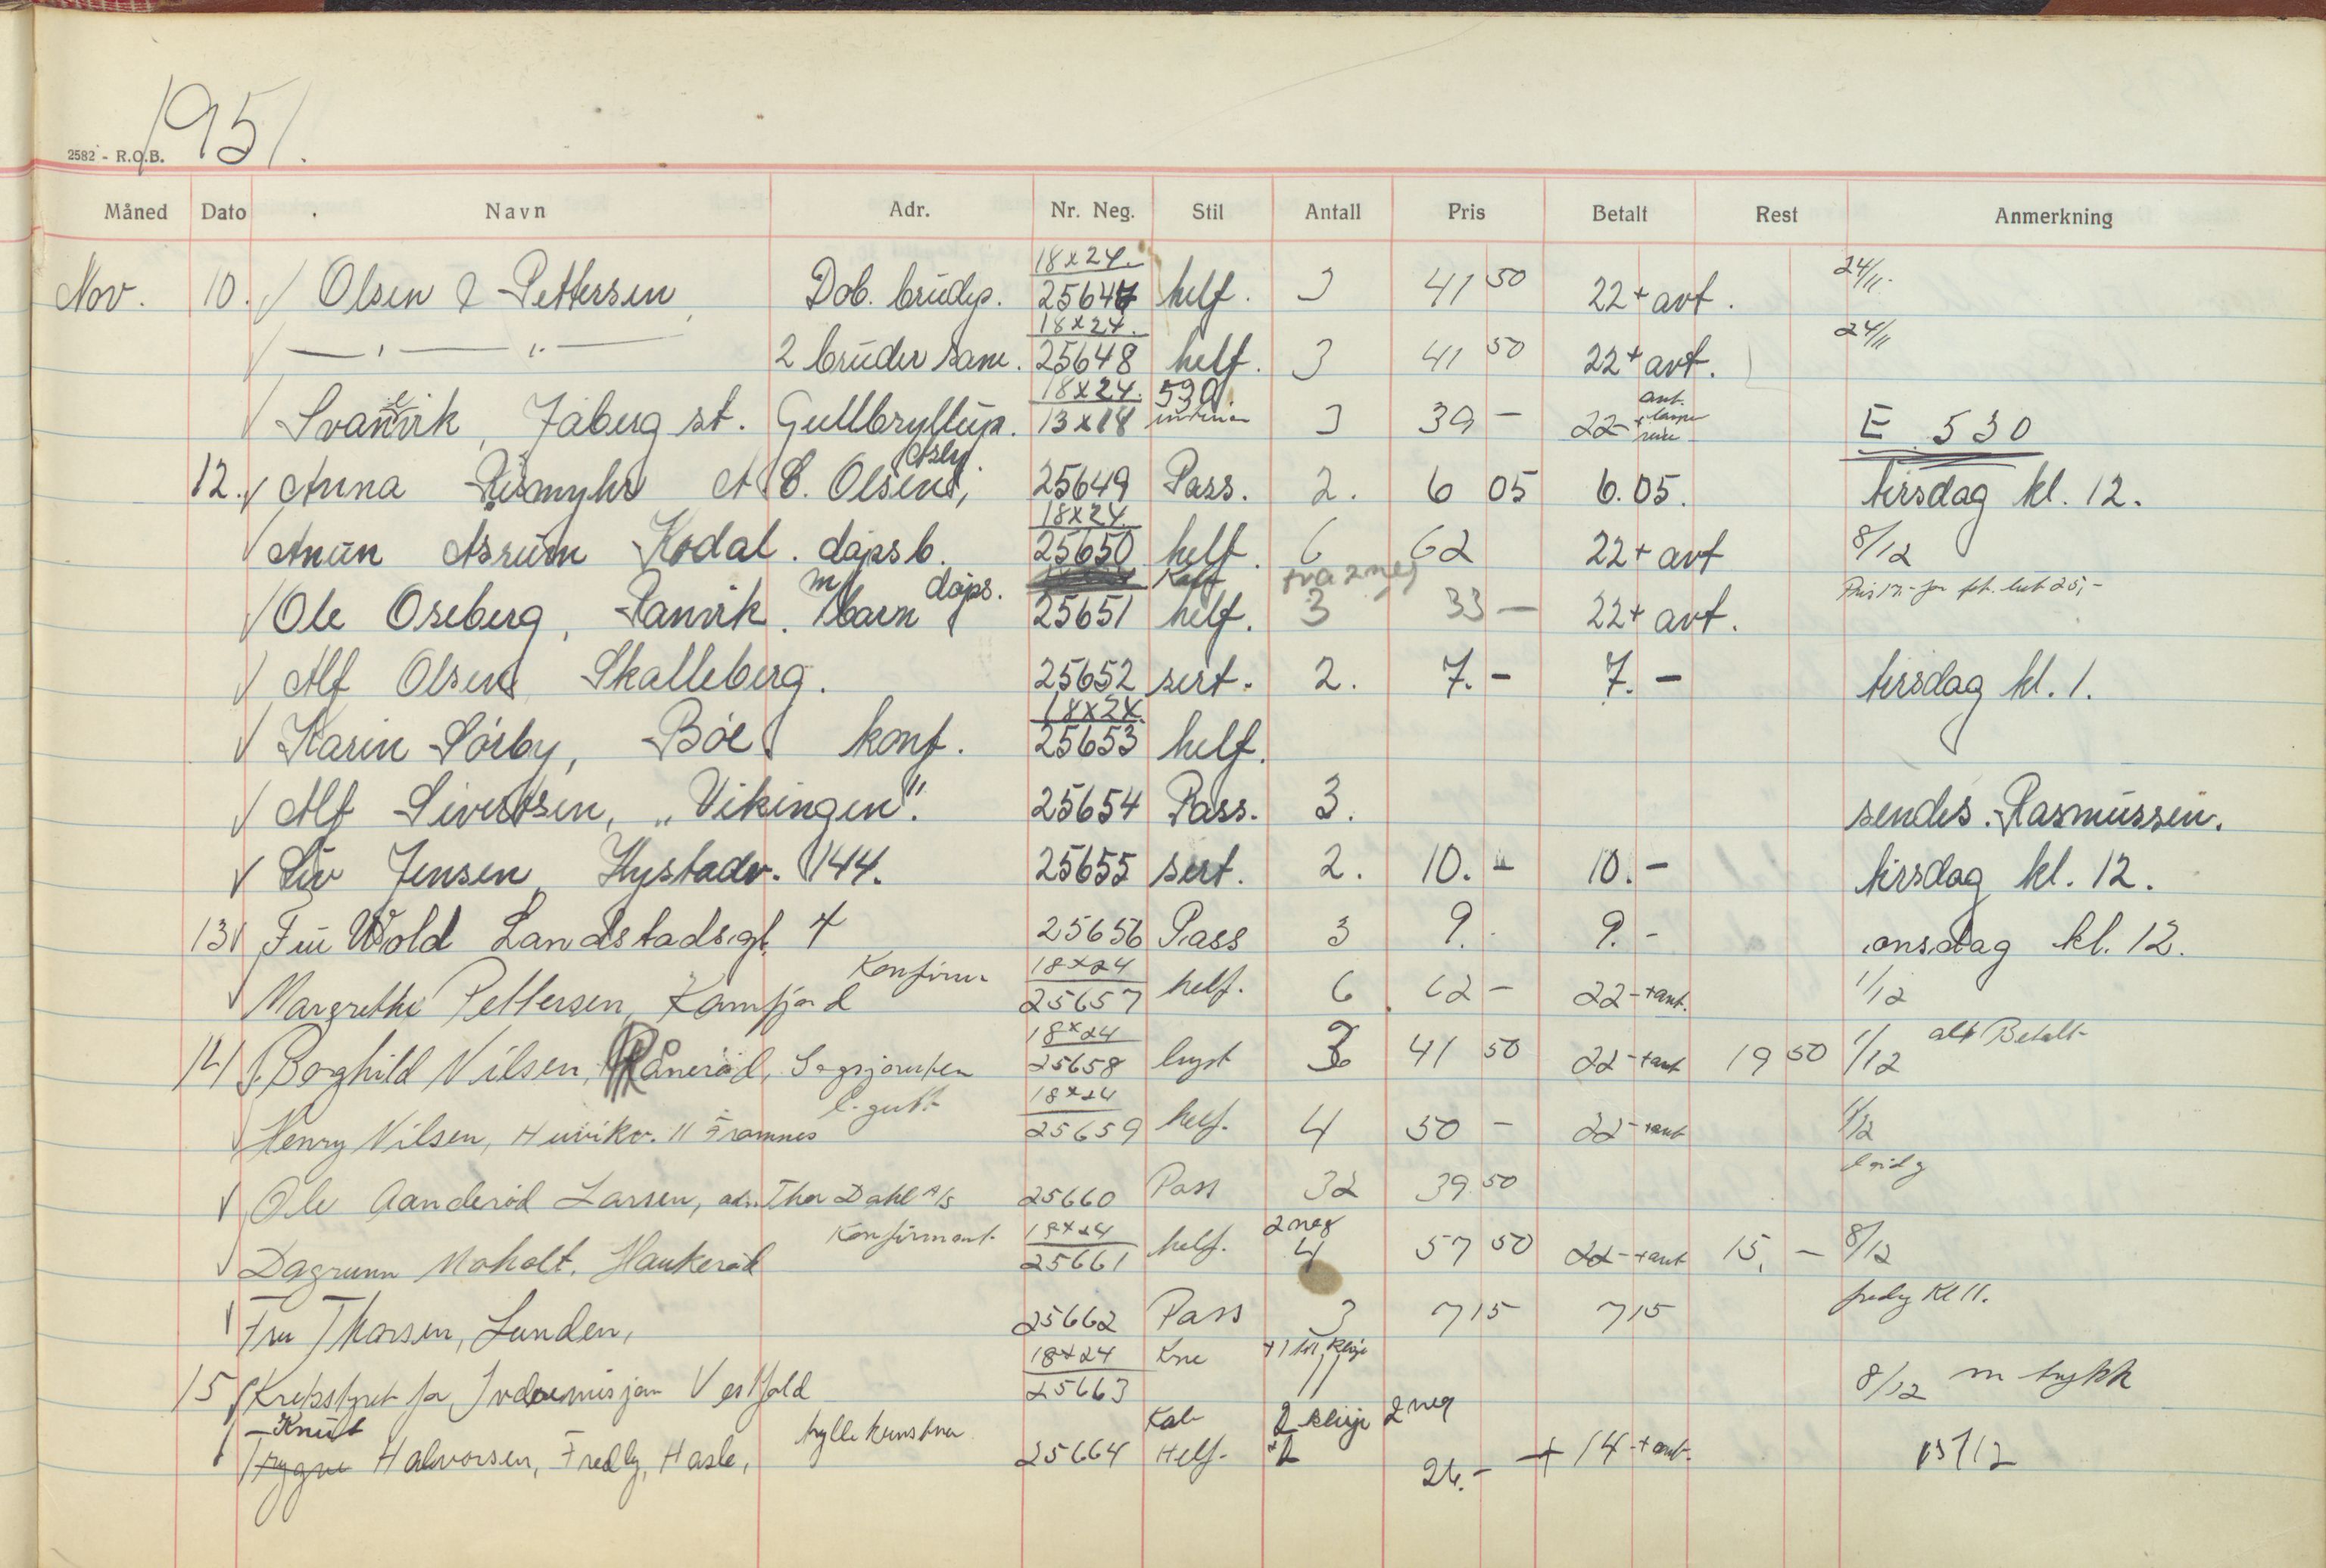 1951.
2582 - R.O.B.
Måned Dato Navn Adr. Nr. Neg. Stil Antall Pris Betalt Rest Anmerkning
Nov. 10. √ Olsen & Pettersen, Dob. brudep. 18x24. 25647 helf. 3 41 50 22+ avt. 24/11.
√ — " — " — 2 bruder sam. 18x24. 25648 helf. 3 41 50 22+ avt. 24/11
√ Svanvik, Jåberg st. Gullbryllup. 18x24. 13x18 530 interiør 3 39 - 22- + ant. E 530
12. √ Anna Rismyhr A C. Olsens, Asly. 25649 Pass. 2. 6 05 6.05. tirsdag kl. 12.
√ Anun Asrum Kodal. dåpsb. 18x24. 25650 helf. 6 62 22+ avt 8/12
√ Ole Oseberg, Ranvik. m/ barn dåps. 25651 Kalf helf. fra 2 neg 3 33 - 22+ avt. 25,-
√ Alf Olsen Skalleberg. 25652 sert. 2. 7.- 7.- tirsdag kl. 1.
√ Karin Sörby, Böe konf. 18x24. 25653 helf.
√ Alf Sivertsen, „Vikingen". 25654 Pass. 3. sendes. Rasmussen.
√ Liv Jensen, Hystadv. 144. 25655 sert. 2. 10.- 10.- tirsdag kl. 12.
13 √ Fru Wold Landstadsgt. 4 25656 Pass 3 9.- 9.- onsdag kl. 12.
√ Margrethe Pettersen, Kamfjord Konfirm 18x24 25657 helf. 6 62 - 22-+ant. 1/12
14 √ Borghild Nilsen, Rånerød, 18x24 25658 bryst 3 41 50 22-+ant 19 50 1/12 alt Betalt
√ Henry Nilsen, Huvikv. 11 Framnes l. gutt 18x24 25659 helf. 4 50 - 22-+ant 1/12
√ Ole Aanderød Larsen, adr. Thor Dahl A/S 25660 Pass 32 39 50
√ Dagrunn Moholt. Haukerød Konfirmant. 18x24 25661 helf. 2 neg 4 57 50 22-+ant 15,- 8/12
√ Fru Thorsen, Lunden, 25662 Pass 3 7 15 7 15 fredg Kl 11.
15 √ Kretsstyret for Indremisjon Vestfold 18x24 25663 Kne 11 8/12 m trykk
√ Knut
Trygve Halvorsen, Fredly, Hasle, tryllekunstner 25664 Kab Helf. 2 klisje 2 neg + 2 26.- + 14-+ant. 15/12